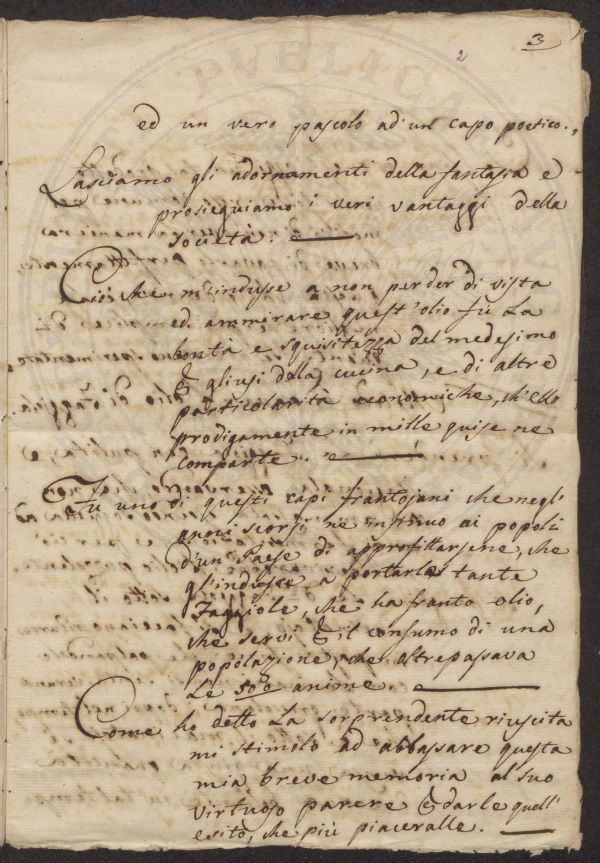 3
2
ed un vero pascolo ad'un capo poetico.
Lasciamo gli adornamenti della fantasia e
proseguiamo i veri vantaggi della
società.
Ciò che m'indusse a non perder di vista
ed ammirare quest'olio fù la
bontà e squisitezza del medesimo
& gl'usi della cucina, e di altre
particolarità economiche, ch'esso
prodigamente in mille guise ne
comparte.
Fù uno di questi capi frantojani che negl'
anni scorsi ne insinuo ai popoli
d'un Paese di approfittarsene, che
gl'indusse a portarle tante
Faggiole, che ha franto olio,
che servì & il consumo di una
popolazione, che oltrepassava
le 500 anime.
Come ho detto la sorprendente riuscita
mi stimolò ad abbassare questa
mia breve memoria al suo
virtuoso parere & darle quell'
esito, che più piaceralle.
PVBLICA